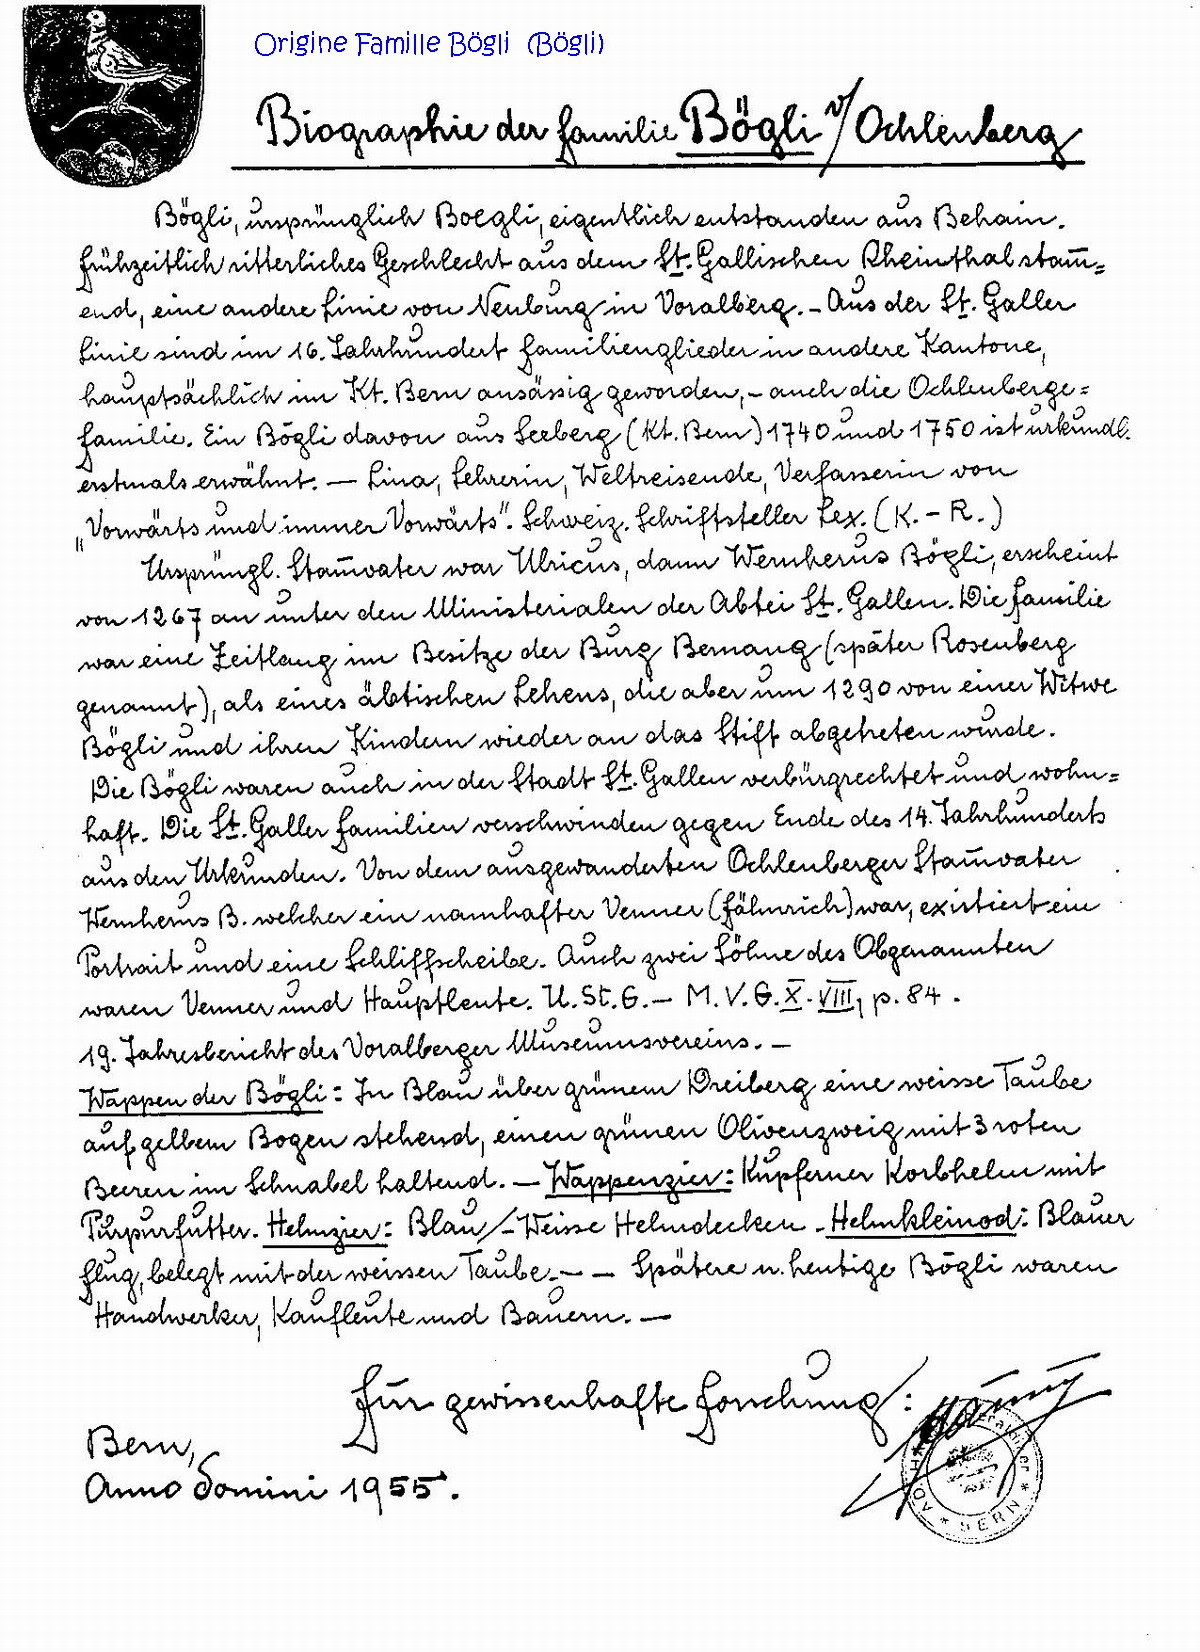 Origine Famille Bögli (Bögli)
Biographie der Familie Bögli v/Ochlenberg
Bögli, ursprünglich Boegli, eigentlich entstanden aus Behain.
Frühzeitlich ritterliches Geschlecht aus dem St. Gallischen Rheinthal stam̅=
end, eine andere Linie von Neuburg in Voralberg. – Aus der St. Galler
Linie sind im 16. Jahrhundert Familienglieder in andere Kantone,
hauptsächlich im Kt. Bern ansässig geworden, – auch die Ochlenberge=
familie. Ein Bögli davon aus Seeberg (Kt. Bern) 1740 und 1750 ist urkundl.
erstmals erwähnt. — Lina, Lehrerin, Weltreisende, Verfasserin von
„Vorwärts und immer Vorwärts". Schweiz. Schriftsteller Lex. (K. – R.)
Ursprüngl. Stam̅vater war Ulricus, dann Wernherus Bögli, erscheint
von 1267 an unter den Ministerialen der Abtei St. Gallen. Die Familie
war eine Zeitlang im Besitze der Burg Bernang (später Rosenberg
genannt), als eines äbtischen Lehens, die aber um 1290 von einer Witwe
Bögli und ihren Kindern wieder an das Stift abgetreten wurde.
Die Bögli waren auch in der Stadt St. Gallen verbürgrechtet und wohn=
haft. Die St. Galler Familien verschwinden gegen Ende des 14. Jahrhunderts
aus den Urkunden. Von dem ausgewanderten Ochlenberger Stam̅vater
Wernherus B. welcher ein namhafter Venner (Fähnrich) war, existiert ein
Portrait und eine Schliffscheibe. Auch zwei Söhne des Obgenannten
waren Venner und Hauptleute. U. St. G. – M. V. G. X. VIII, p. 84.
19. Jahresbericht des Voralberger Museumsvereins. —
Wappen der Bögli: In Blau über grünem Dreiberg eine weisse Taube
auf gelbem Bogen stehend, einen grünen Olivenzweig mit 3 roten
Beeren im Schnabel haltend. — Wappenzier: Kupferner Korbhelm mit
Purpurfutter. Helmzier: Blau/–Weisse Helmdecken – Helmkleinod: Blauer
Flug, belegt mit der weissen Taube. – — Spätere u. heutige Bögli waren
Handwerker, Kaufleute und Bauern. —
Für gewissenhafte Forschung:
Bern,
Anno Domini 1955.
BERN